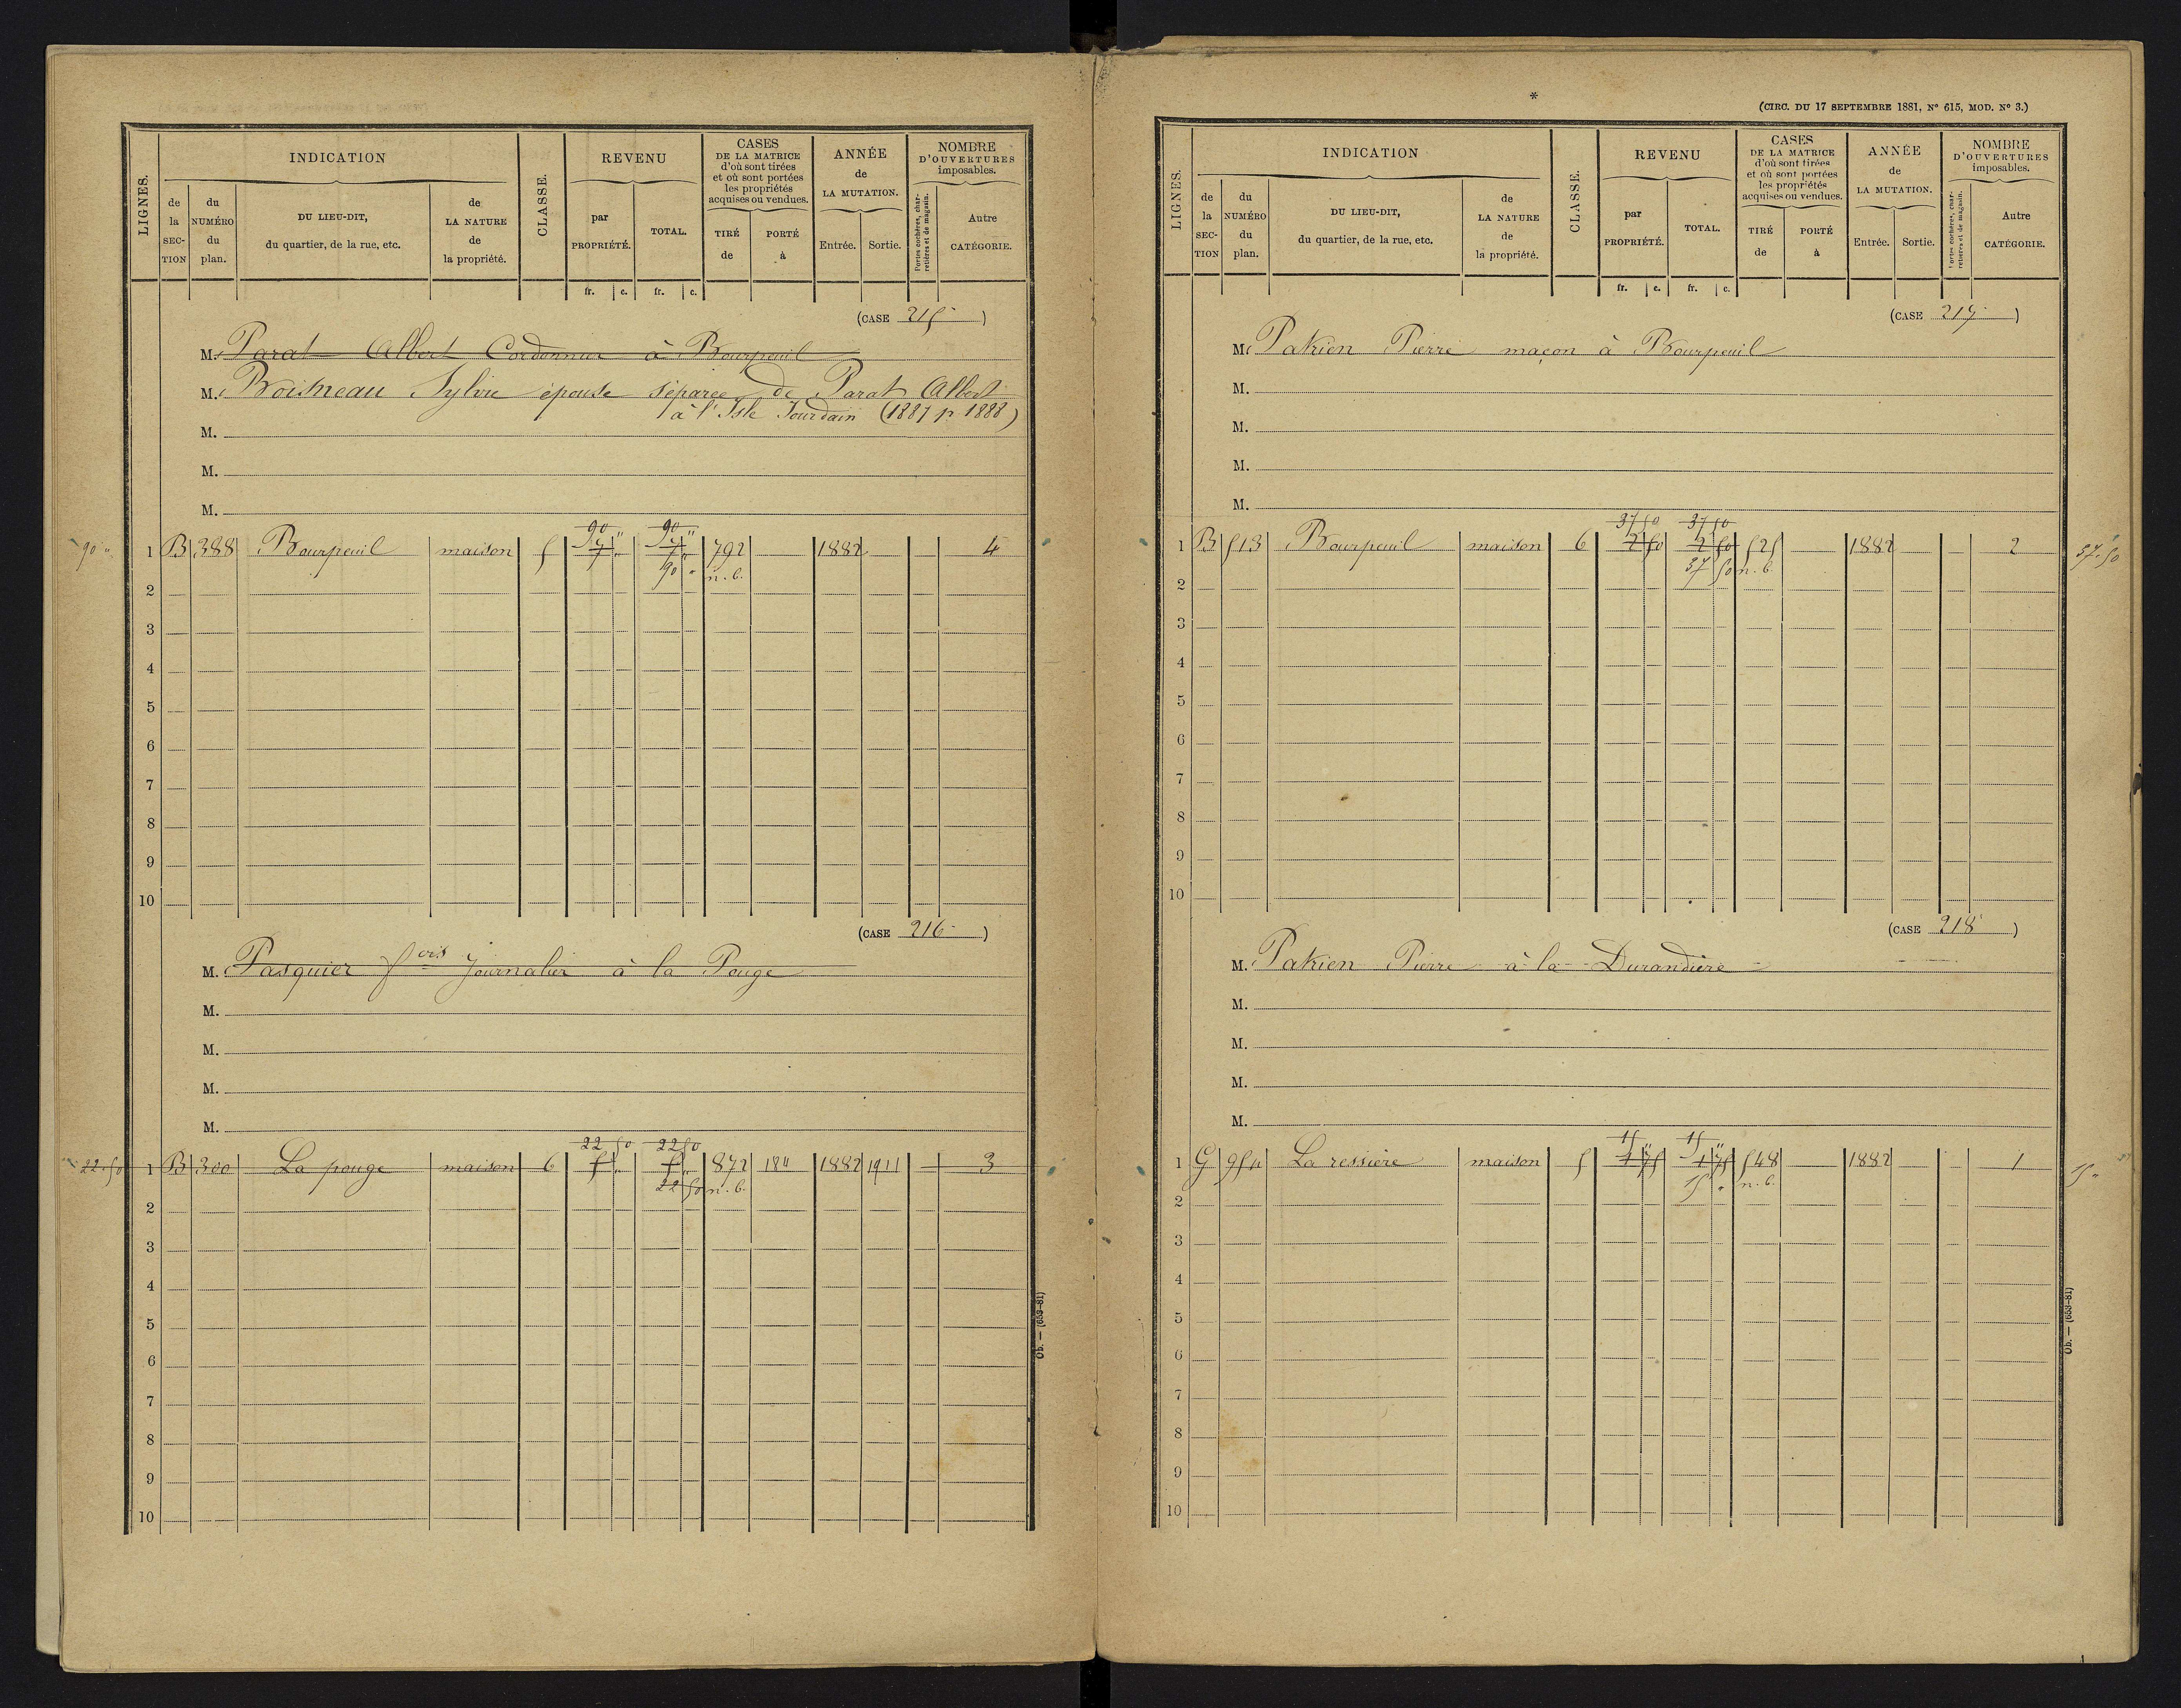 LIGNES.
INDICATION
de la SECTION
du NUMÉRO du plan.
DU LIEU-DIT, du quartier, de la rue, etc.
de LA NATURE de la propriété.
CLASSE.
REVENU
par PROPRIÉTÉ.
TOTAL.
CASES DE LA MATRICE d'où sont tirées et où sont portées les propriétés acquises ou vendues.
TIRÉ de
PORTÉ à
ANNÉE de LA MUTATION.
Entrée.
Sortie.
NOMBRE D'OUVERTURES imposables.
Portes cochères, charretières et de magasin.
Autre CATÉGORIE.
fr. c. fr. c.
(CASE 215)
M. Parat Albert Cordonnier à Bourpeuil
M. Boismeau Sylvie épouse séparée de Parat Albert
à l'Isle Jourdain (1887 pr 1888)
M.
M.
M.
90 " 90 "
90 " 1 B 388 Bourpeuil maison 5 7 " 7 " 792 1882 4
90 " n. b.
2
3
4
5
6
7
8
9
10
(CASE 216)
M. Pasquier fois Journalier à la Pouge
M.
M.
M.
M.
22 50 22 50
22.50 1 B 300 La pouge maison 6 5 " 5 " 872 184 1882 1911 3
22 50 n. b.
2
3
4
5
6
7
8
9
10
Ob. — (653-81)
*
(CIRC. DU 17 SEPTEMBRE 1881, N° 615, MOD. N° 3.)
LIGNES.
INDICATION
de la SECTION
du NUMÉRO du plan.
DU LIEU-DIT, du quartier, de la rue, etc.
de LA NATURE de la propriété.
CLASSE.
REVENU
par PROPRIÉTÉ.
TOTAL.
CASES DE LA MATRICE d'où sont tirées et où sont portées les propriétés acquises ou vendues.
TIRÉ de
PORTÉ à
ANNÉE de LA MUTATION.
Entrée.
Sortie.
NOMBRE D'OUVERTURES imposables.
Portes cochères, charretières et de magasin.
Autre CATÉGORIE.
fr. c. fr. c.
(CASE 217)
M. Patrien Pierre maçon à Bourpeuil
M.
M.
M.
M.
37 50 37 50
1 B 513 Bourpeuil maison 6 2 50 2 50 525 1882 2 37.50
37 50 n. b.
2
3
4
5
6
7
8
9
10
(CASE 218)
M. Patrien Pierre à la Durandière
M.
M.
M.
M.
15 " 15 "
1 G 954 La ressière maison 5 1 75 1 75 548 1882 1 15 "
15 " n. b.
2
3
4
5
6
7
8
9
10
Ob. — (653-81)